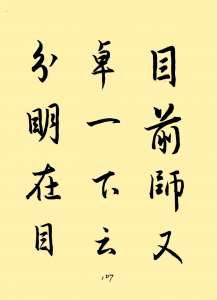 目前師又
卓一下云
分明在目
127